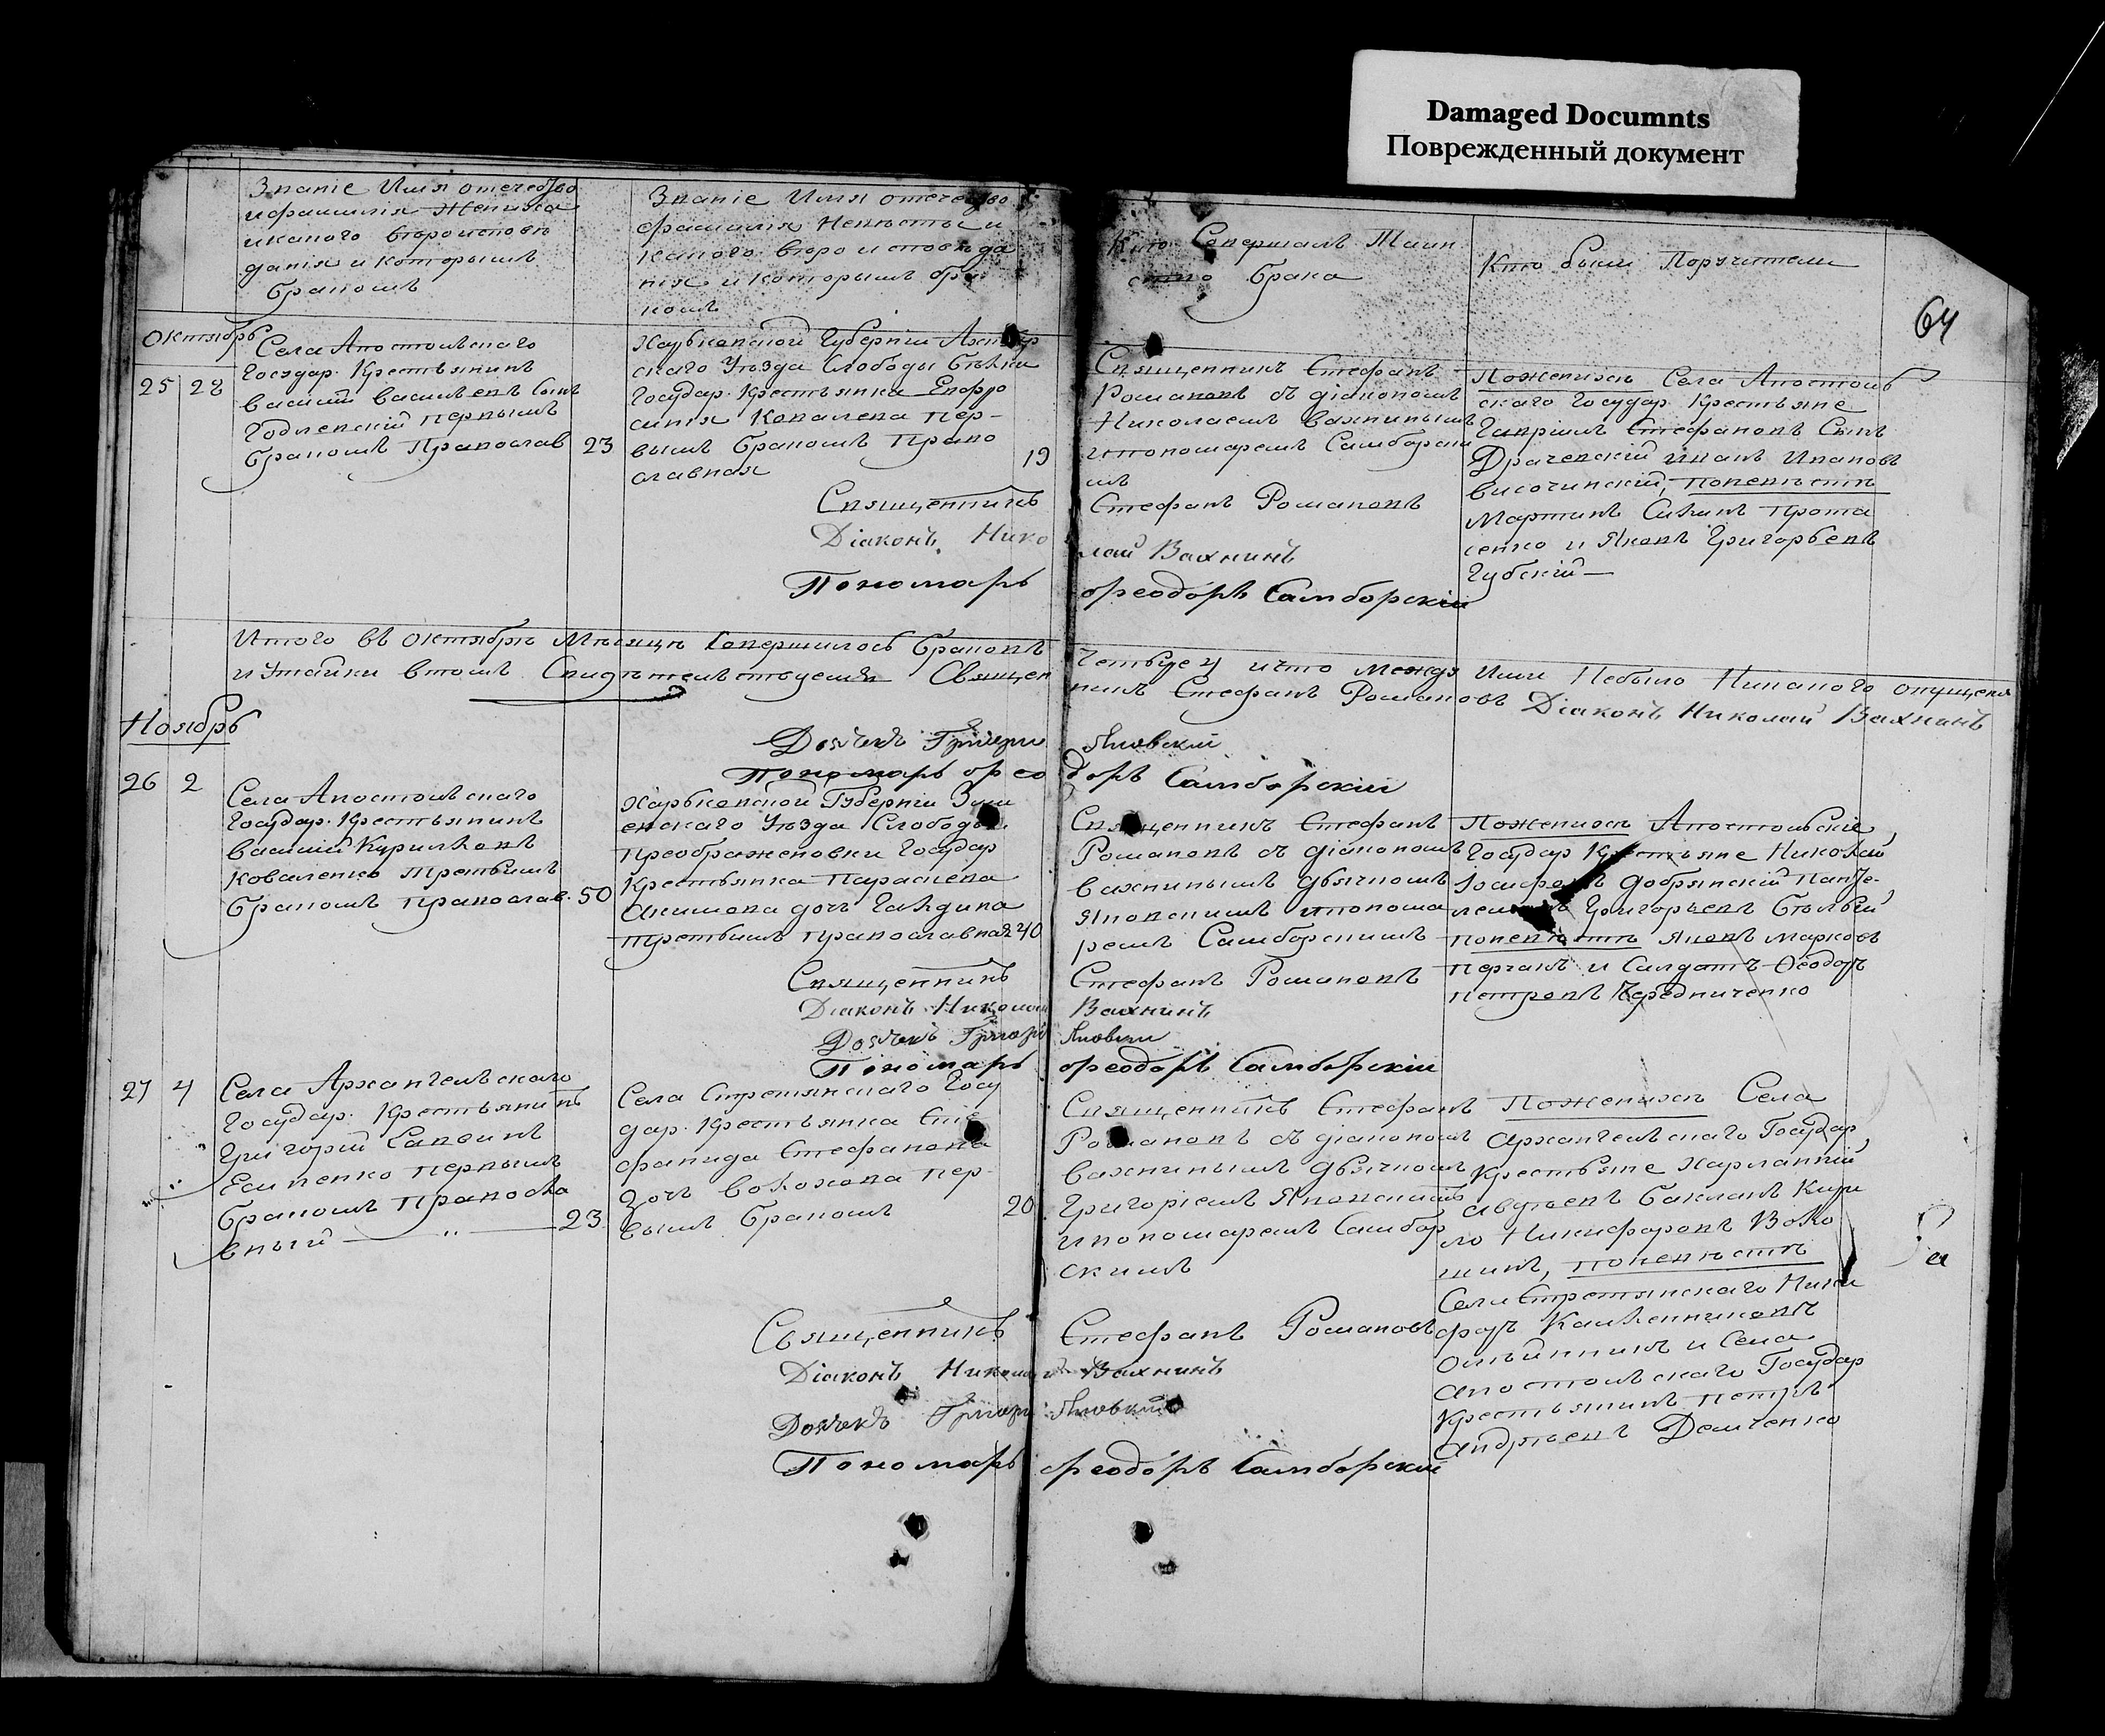 Damaged Documnts
Поврежденный документ
64
Званіе Имя отечество
и фамилія Жениха
и какого вероисповѣ
данія и которымъ
бракомъ
Званіе Имя отечество
фамилія Невѣсты и
какого веро исповѣда
нія и которымъ бра
комъ
Кто Совершалъ Таин
ство брака
Кто были Поручители
Октябрь
25 28
Села Апостольскаго
Государ. Крестьянинъ
Василій Васильевъ Сынъ
первымъ
бракомъ Православ 23
Харьковской Губерніи
скаго Уѣзда Слободы
Государ. Крестьянка Евфро
синія Ковалева пер-
вымъ бракомъ Право
славная 19
Священникъ Стефанъ
Романовъ съ діакономъ
Николаемъ Вахнинымъ
и пономаремъ Самборски
мъ
По женихѣ Села Апостоль
скаго Государ. Крестьяне
Гавріилъ Стефановъ Сынъ
Драчевскій Иванъ Ивановъ
Височинскій, по невѣстѣ
Мартинъ Прота
сенко и Яковъ Григорьевъ
Губскій —
Священникъ Стефанъ Романовъ
Діаконъ Николай Вахнинъ
Пономарь Ѳеодоръ Самборскій
Итого въ Октябрѣ Мѣсяцѣ Совершилось браковъ Четыре 4 и что между ими Небыло Никакого опущенія
и Утайки в томъ Свидѣтельствуемъ Священникъ Стефанъ Романовъ Діаконъ Николай Вахнинъ
Ноябрь
Дьячекъ Григорий Яновский
Пономарь Ѳеодоръ Самборскій
26 2
Села Апостольскаго
Государ. Крестьянинъ
Василій
Коваленко Третьимъ
бракомъ православ. 50
Харьковской Губерніи Зми
евскаго Уѣзда Слободы
Преображеновки Государ
Крестьянка Параскева
Акимова дочь
третьимъ православная 40
Священникъ Стефанъ
Романовъ съ діакономъ
Вахнинымъ дьячкомъ
Яновскимъ и понома
ремъ Самборскимъ
По женихѣ Апостольскіе
Государ Крестьяне Николай
Іосифовъ Добрянскій
Григорьевъ
по невѣстѣ Яковъ Марковъ
и Салдатъ Ѳеодоръ
Петровъ Чередниченко
Священникъ Стефанъ Романовъ
Діаконъ Николай Вахнинъ
Дьячекъ Григорій Яновский
Пономарь Ѳеодоръ Самборскій
27 4
Села Архангельскаго
Государ. Крестьянинъ
Григорій Саввинъ
Есипенко первымъ
бракомъ Правосла
вный — 23
Села Стретинскаго Госу
дар. Крестьянка Сте
фанида Стефанова
дочь пер
вымъ бракомъ 20
Священникъ Стефанъ
Романовъ съ діакономъ
Вахнинымъ дьячкомъ
Григоріемъ Яновскимъ
и пономаремъ Самбор
скимъ
По женихѣ Села
Архангельскаго Государ
Крестьяне Харлампій
Авдѣевъ Бакланъ Кири
ло Никифоровъ
по невѣстѣ
Села Стретинскаго Ники
форъ
и Села
Апостольскаго Государ
Крестьянинъ Петръ
Андрѣевъ Демченко
Священникъ Стефанъ Романовъ
Діаконъ Николай Вахнинъ
Дьячекъ Григорий Яновский
Пономарь Ѳеодоръ Самборскій